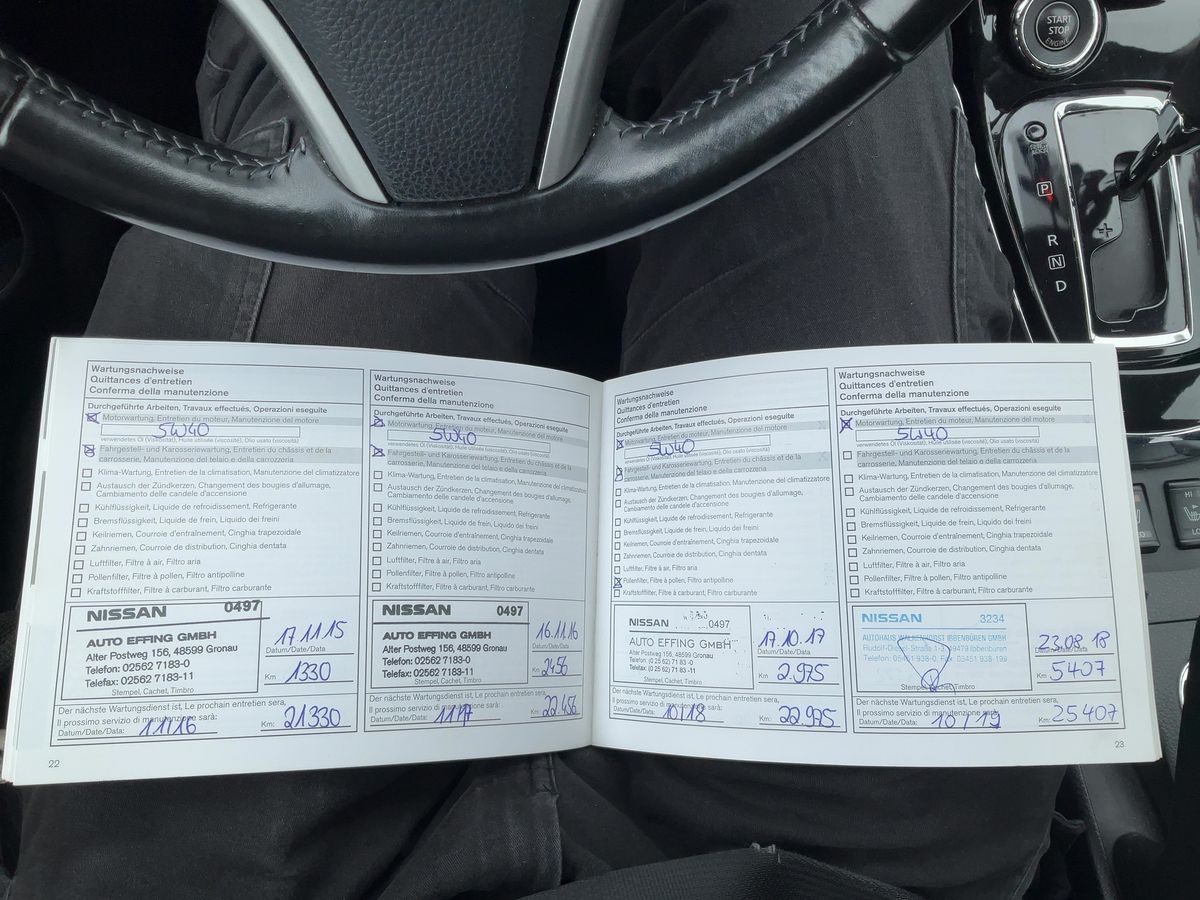 START
STOP
ENGINE
P
R
N
D
+
HI
Wartungsnachweise
Quittances d'entretien
Conferma della manutenzione
Durchgeführte Arbeiten, Travaux effectués, Operazioni eseguite
Motorwartung, Entretien du moteur, Manutenzione del motore
5W40
verwendetes Öl (Viskosität), Huile utilisée (viscosité), Olio usato (viscosità)
Fahrgestell- und Karosseriewartung, Entretien du châssis et de la
carrosserie, Manutenzione del telaio e della carrozzeria
Klima-Wartung, Entretien de la climatisation, Manutenzione del climatizzatore
Austausch der Zündkerzen, Changement des bougies d'allumage,
Cambiamento delle candele d'accensione
Kühlflüssigkeit, Liquide de refroidissement, Refrigerante
Bremsflüssigkeit, Liquide de frein, Liquido dei freini
Keilriemen, Courroie d'entraînement, Cinghia trapezoidale
Zahnriemen, Courroie de distribution, Cinghia dentata
Luftfilter, Filtre à air, Filtro aria
Pollenfilter, Filtre à pollen, Filtro antipolline
Kraftstofffilter, Filtre à carburant, Filtro carburante
NISSAN 0497
AUTO EFFING GMBH
Alter Postweg 156, 48599 Gronau
Telefon: 02562 7183-0
Telefax: 02562 7183-11
Stempel, Cachet, Timbro
17.11.15
Datum/Date/Data:
Km: 1330
Der nächste Wartungsdienst ist, Le prochain entretien sera,
Il prossimo servizio di manutenzione sarà:
Datum/Date/Data: 11/16 Km: 21330
22
Wartungsnachweise
Quittances d'entretien
Conferma della manutenzione
Durchgeführte Arbeiten, Travaux effectués, Operazioni eseguite
Motorwartung, Entretien du moteur, Manutenzione del motore
5W40
verwendetes Öl (Viskosität), Huile utilisée (viscosité), Olio usato (viscosità)
Fahrgestell- und Karosseriewartung, Entretien du châssis et de la
carrosserie, Manutenzione del telaio e della carrozzeria
Klima-Wartung, Entretien de la climatisation, Manutenzione del climatizzatore
Austausch der Zündkerzen, Changement des bougies d'allumage,
Cambiamento delle candele d'accensione
Kühlflüssigkeit, Liquide de refroidissement, Refrigerante
Bremsflüssigkeit, Liquide de frein, Liquido dei freini
Keilriemen, Courroie d'entraînement, Cinghia trapezoidale
Zahnriemen, Courroie de distribution, Cinghia dentata
Luftfilter, Filtre à air, Filtro aria
Pollenfilter, Filtre à pollen, Filtro antipolline
Kraftstofffilter, Filtre à carburant, Filtro carburante
NISSAN 0497
AUTO EFFING GMBH
Alter Postweg 156, 48599 Gronau
Telefon: 02562 7183-0
Telefax: 02562 7183-11
Stempel, Cachet, Timbro
16.11.16
Datum/Date/Data:
Km: 2456
Der nächste Wartungsdienst ist, Le prochain entretien sera,
Il prossimo servizio di manutenzione sarà:
Datum/Date/Data: 11/17 Km: 22456
Wartungsnachweise
Quittances d'entretien
Conferma della manutenzione
Durchgeführte Arbeiten, Travaux effectués, Operazioni eseguite
Motorwartung, Entretien du moteur, Manutenzione del motore
5W40
verwendetes Öl (Viskosität), Huile utilisée (viscosité), Olio usato (viscosità)
Fahrgestell- und Karosseriewartung, Entretien du châssis et de la
carrosserie, Manutenzione del telaio e della carrozzeria
Klima-Wartung, Entretien de la climatisation, Manutenzione del climatizzatore
Austausch der Zündkerzen, Changement des bougies d'allumage,
Cambiamento delle candele d'accensione
Kühlflüssigkeit, Liquide de refroidissement, Refrigerante
Bremsflüssigkeit, Liquide de frein, Liquido dei freini
Keilriemen, Courroie d'entraînement, Cinghia trapezoidale
Zahnriemen, Courroie de distribution, Cinghia dentata
Luftfilter, Filtre à air, Filtro aria
Pollenfilter, Filtre à pollen, Filtro antipolline
Kraftstofffilter, Filtre à carburant, Filtro carburante
NISSAN 0497
AUTO EFFING GMBH
Alter Postweg 156, 48599 Gronau
Telefon: (0 25 62) 71 83 - 0
Telefax: (0 25 62) 71 83 - 11
Stempel, Cachet, Timbro
17.10.17
Datum/Date/Data:
Km: 2.975
Der nächste Wartungsdienst ist, Le prochain entretien sera,
Il prossimo servizio di manutenzione sarà:
Datum/Date/Data: 10/18 Km: 22.975
Wartungsnachweise
Quittances d'entretien
Conferma della manutenzione
Durchgeführte Arbeiten, Travaux effectués, Operazioni eseguite
Motorwartung, Entretien du moteur, Manutenzione del motore
5W40
verwendetes Öl (Viskosität), Huile utilisée (viscosité), Olio usato (viscosità)
Fahrgestell- und Karosseriewartung, Entretien du châssis et de la
carrosserie, Manutenzione del telaio e della carrozzeria
Klima-Wartung, Entretien de la climatisation, Manutenzione del climatizzatore
Austausch der Zündkerzen, Changement des bougies d'allumage,
Cambiamento delle candele d'accensione
Kühlflüssigkeit, Liquide de refroidissement, Refrigerante
Bremsflüssigkeit, Liquide de frein, Liquido dei freini
Keilriemen, Courroie d'entraînement, Cinghia trapezoidale
Zahnriemen, Courroie de distribution, Cinghia dentata
Luftfilter, Filtre à air, Filtro aria
Pollenfilter, Filtre à pollen, Filtro antipolline
Kraftstofffilter, Filtre à carburant, Filtro carburante
NISSAN 3234
AUTOHAUS WALKENHORST IBBENBÜREN GMBH
Rudolf-Diesel-Straße 1-3, 49479 Ibbenbüren
Telefon: 05451-938-0, Fax: 05451 938-199
Stempel, Cachet, Timbro
23.08.18
Datum/Date/Data:
Km: 5407
Der nächste Wartungsdienst ist, Le prochain entretien sera,
Il prossimo servizio di manutenzione sarà:
Datum/Date/Data: 10/19 Km: 25407
23